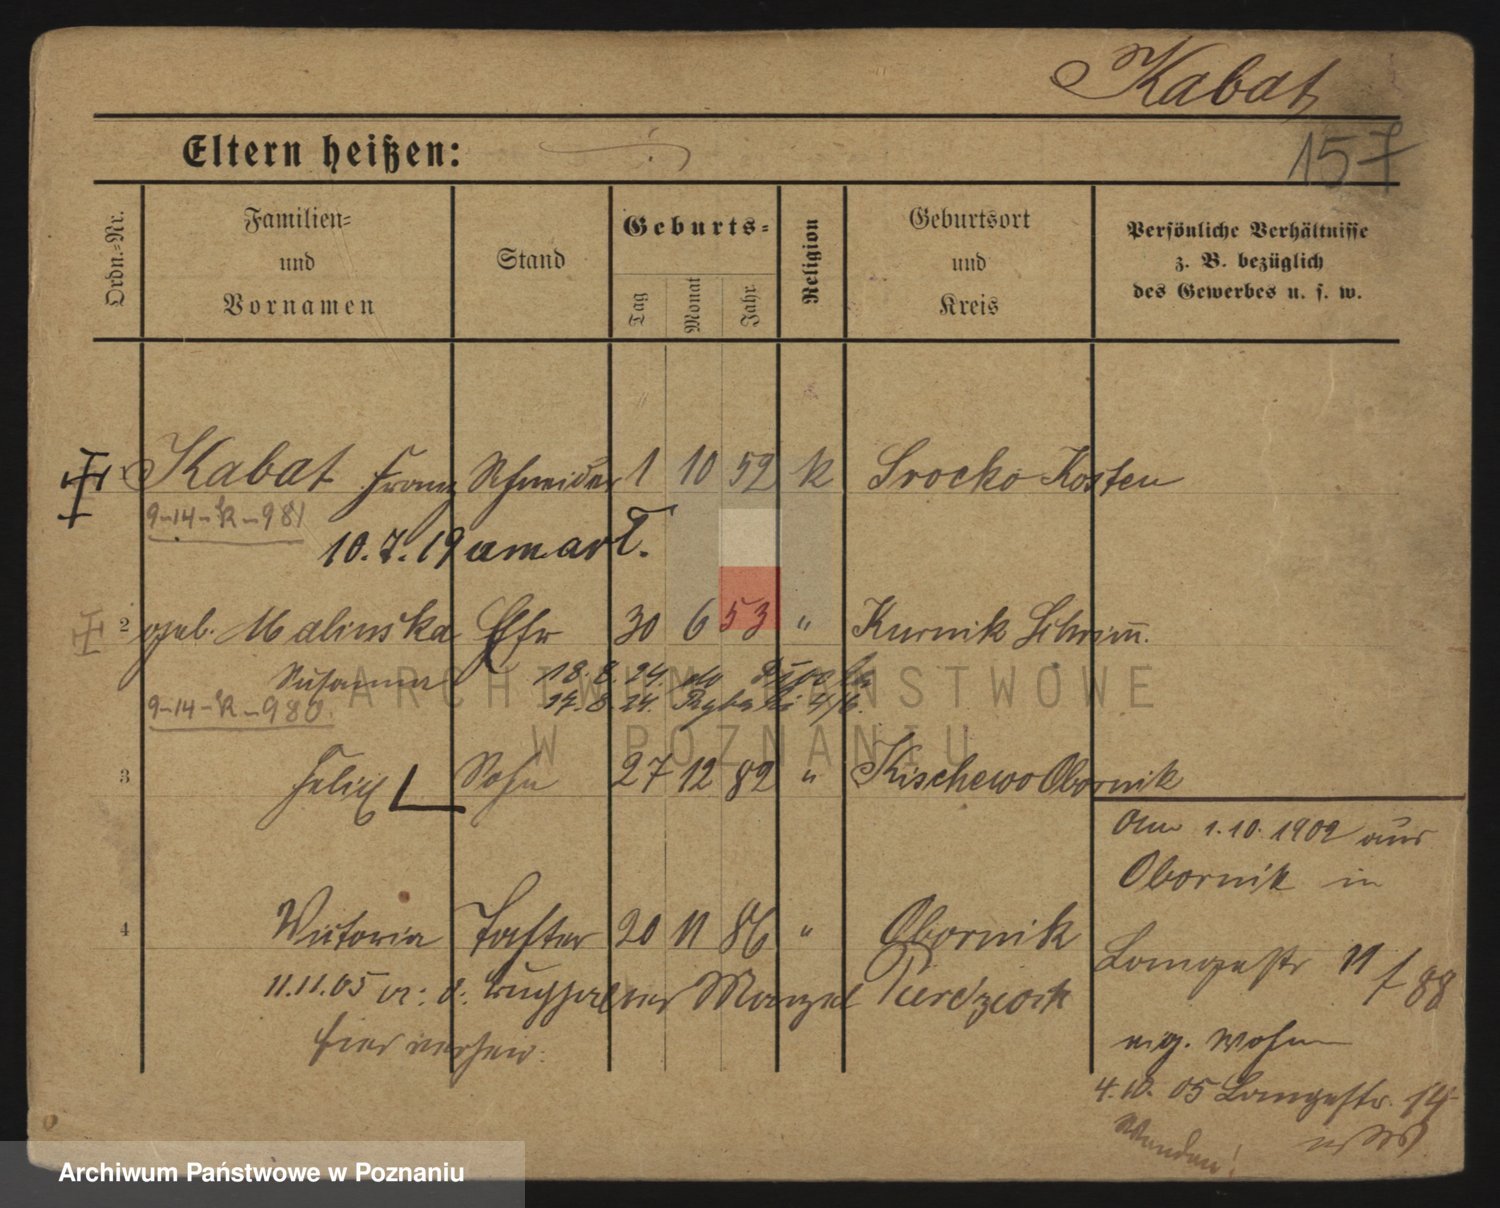 Kabat
157
Eltern heißen:
Ordn.-Nr.
Familien- und Vornamen
Stand
Geburts-
Tag
Monat
Jahr
Religion
Geburtsort und Kreis
Persönliche Verhältnisse z. B. bezüglich des Gewerbes u. s. w.
Kabat Franz Schneider 1 10 52 k Srocko Kosten
9-14-K-981
10.7.19
2 geb. Malinska Ehfr 30 6 53 " Kurnik Schrimm.
Susanna 18.8.24.
9-14-K-980. 14.8.24.
ARCHIWUM PAŃSTWOWE
W POZNANIU
3 Felix Sohn 27 12 82 " Kischewo Obornik
Am 1.10.1902 aus
Obornik in
4 Victoria Tochter 20 11 86 " Obornik
Langestr 11
88
11.11.05
hier
Wohn
4.10.05 Langestr. 14
Wenden!
Archiwum Państwowe w Poznaniu